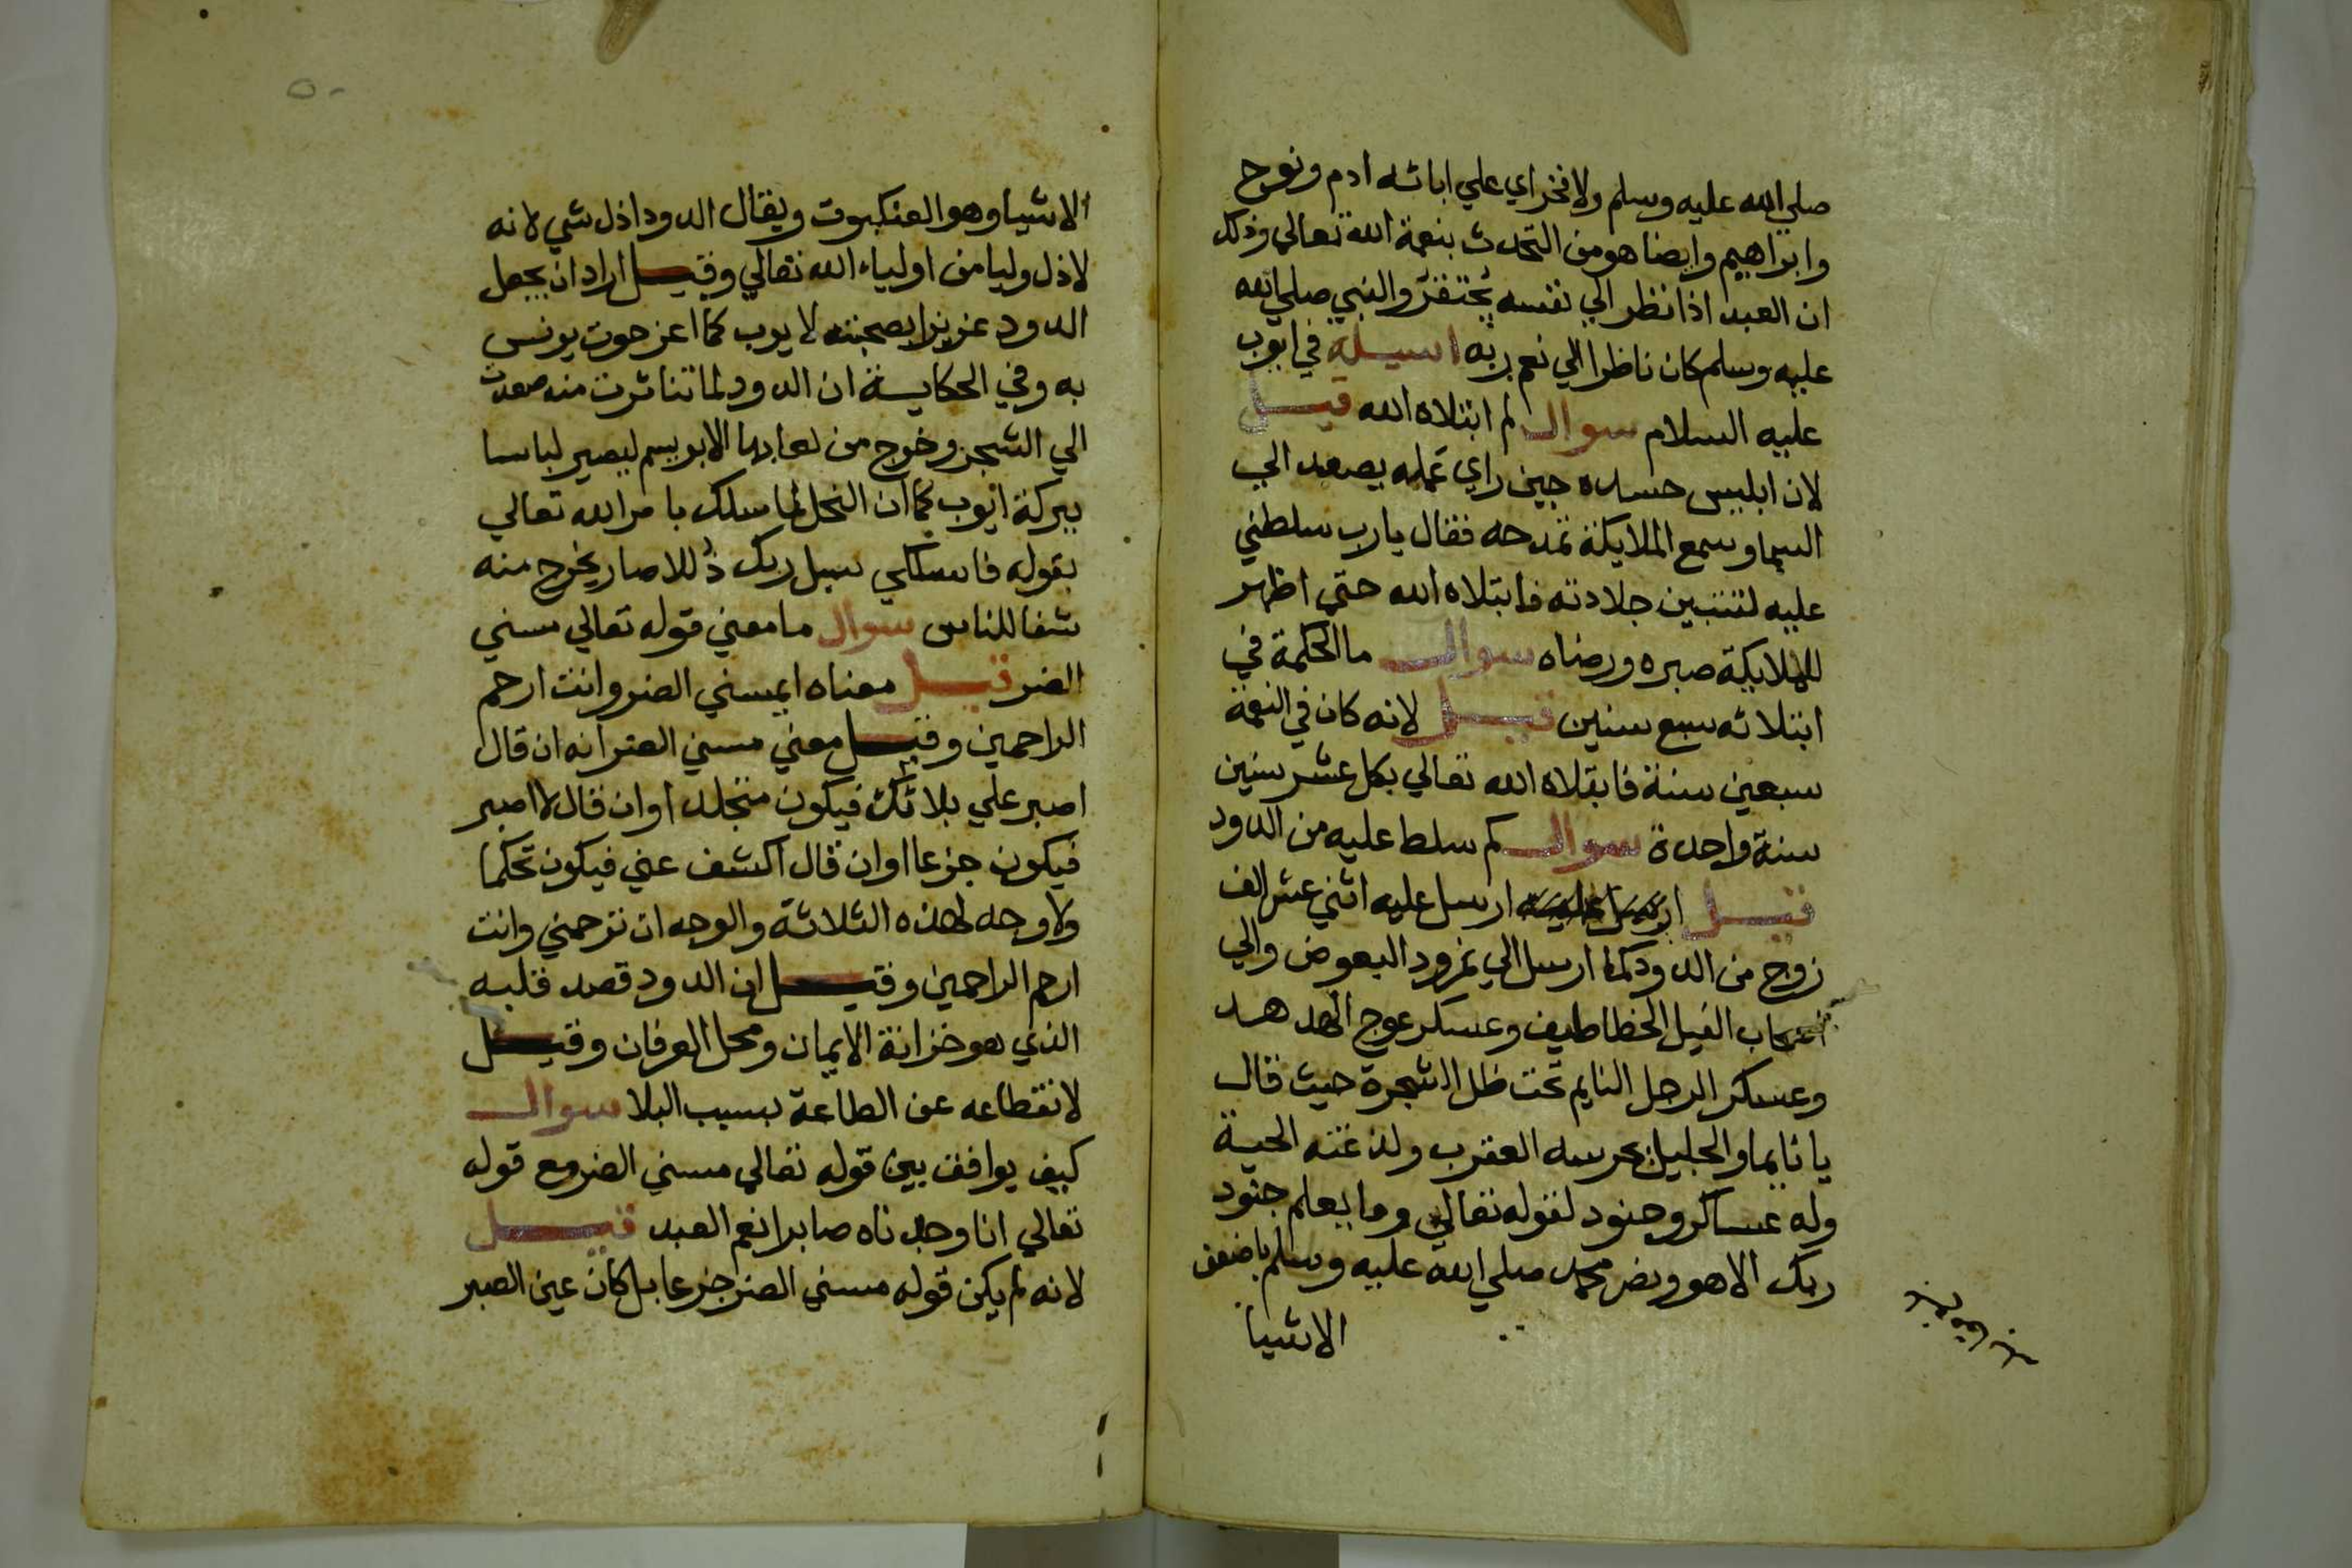 صلي الله عليه وسلم ولا فخر اي علي ابائه ادم ونوح
وابراهيم وايضا هو من التحدث بنعمة الله تعالي وذلك
ان العبد اذا نظر الي نفسه يحتقر والنبي صلي الله
عليه وسلم كان ناظرا الي نعم ربه اسيلة في ايوب
عليه السلام سوال لم ابتلاه الله قيل
لان ابليس حسده حين راي عمله يصعد الي
السما وسمع الملايكة تمدحه فقال يا رب سلطني
عليه لتتبين جلادته فابتلاه الله حتي اظهر
للملايكة صبره ورضاه سوال ما الحكمة في
ابتلائه سبع سنين قيل لانه كان في النعمة
سبعين سنة فابتلاه الله تعالي بكل عشر سنين
سنة واحدة سوال كم سلط عليه من الدود
قيل ارسل عليه اثني عشر الف
زوج من الدود كما ارسل الي نمرود البعوض والي
اصحاب الفيل الخطاطيف وعسكر عوج الهدهد
وعسكر الرجل النايم تحت ظل الشجرة حيث قال
يا نايما والجليل يحرسه العقرب ولدغته الحية
وله عساكر وجنود لقوله تعالي وما يعلم جنود
ربك الا هو ونصر محمد صلي الله عليه وسلم باضعف
الاشيا
٥٠
الاشيا وهو العنكبوت ويقال الدود اذل شي لانه
لاذل وليا من اولياء الله تعالي وقيل اراد ان يجعل
الدود عزيزا بصحبته لايوب كما اعز حوت يونس
به وفي الحكاية ان الدود لما تناثرت منه صعدت
الي الشجر وخرج من لعابها الابريسم ليصير لباسا
ببركة ايوب كما ان النحل لما سلك بامر الله تعالي
بقوله فاسلكي سبل ربك ذللا صار يخرج منه
شفا للناس سوال ما معني قوله تعالي مسني
الضر قيل معناه ايمسني الضر وانت ارحم
الراحمين وقيل معني مسني الضر انه ان قال
اصبر علي بلائك فيكون متجلدا وان قال لا اصبر
فيكون جزعا وان قال اكشف عني فيكون تحكما
ولا وجه لهذه الثلاثة والوجه ان ترحمني وانت
ارحم الراحمين وقيل ان الدود قصد قلبه
الذي هو خزانة الايمان ومحل العرفان وقيل
لانقطاعه عن الطاعة بسبب البلا سوال
كيف يوافق بين قوله تعالي مسني الضر مع قوله
تعالي انا وجدناه صابرا نعم العبد قيل
لانه لم يكن قوله مسني الضر جزعا بل كان عين الصبر